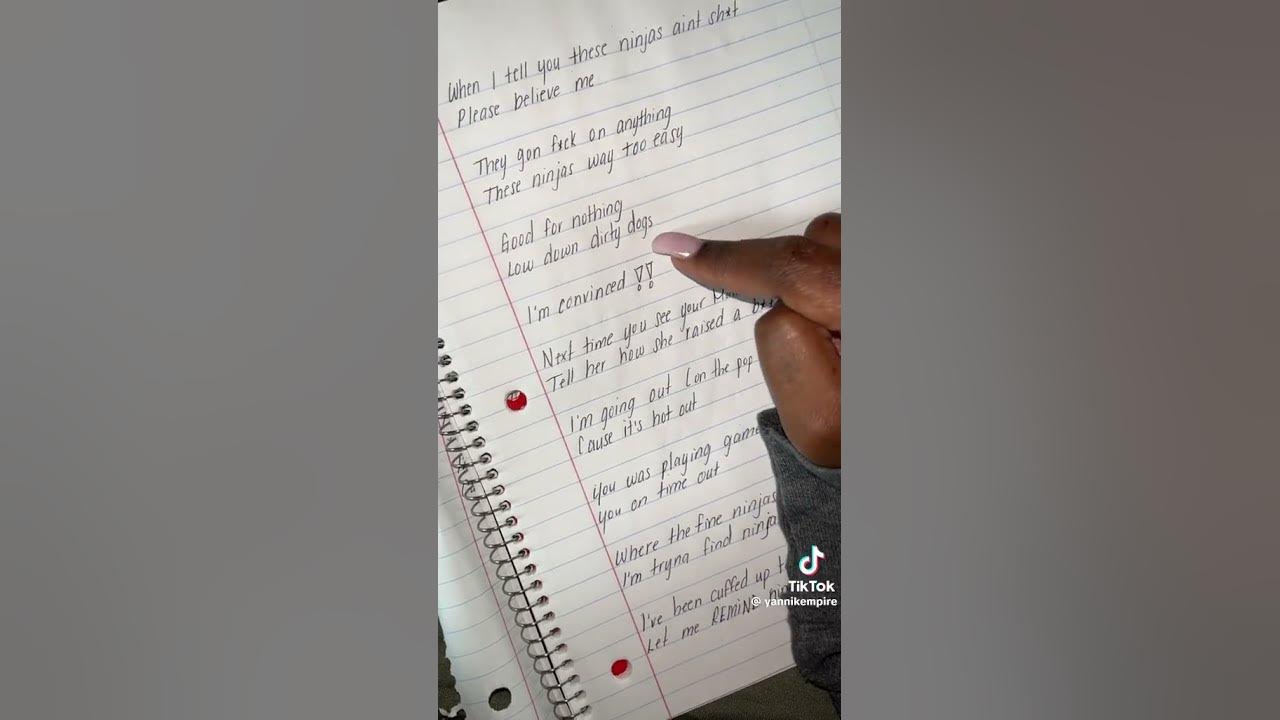 When I tell you these ninjas aint sh*t
Please believe me
They gon f*ck on anything
These ninjas way too easy
Good for nothing
Low down dirty dogs
I'm convinced !!
Next time you see your
Tell her how she raised a
I'm going out (on the pop
'Cause it's hot out
You was playing
You on time out
Where the fine ninjas
I'm tryna find
I've been cuffed up
Let me REMIND
TikTok
@yannikempire